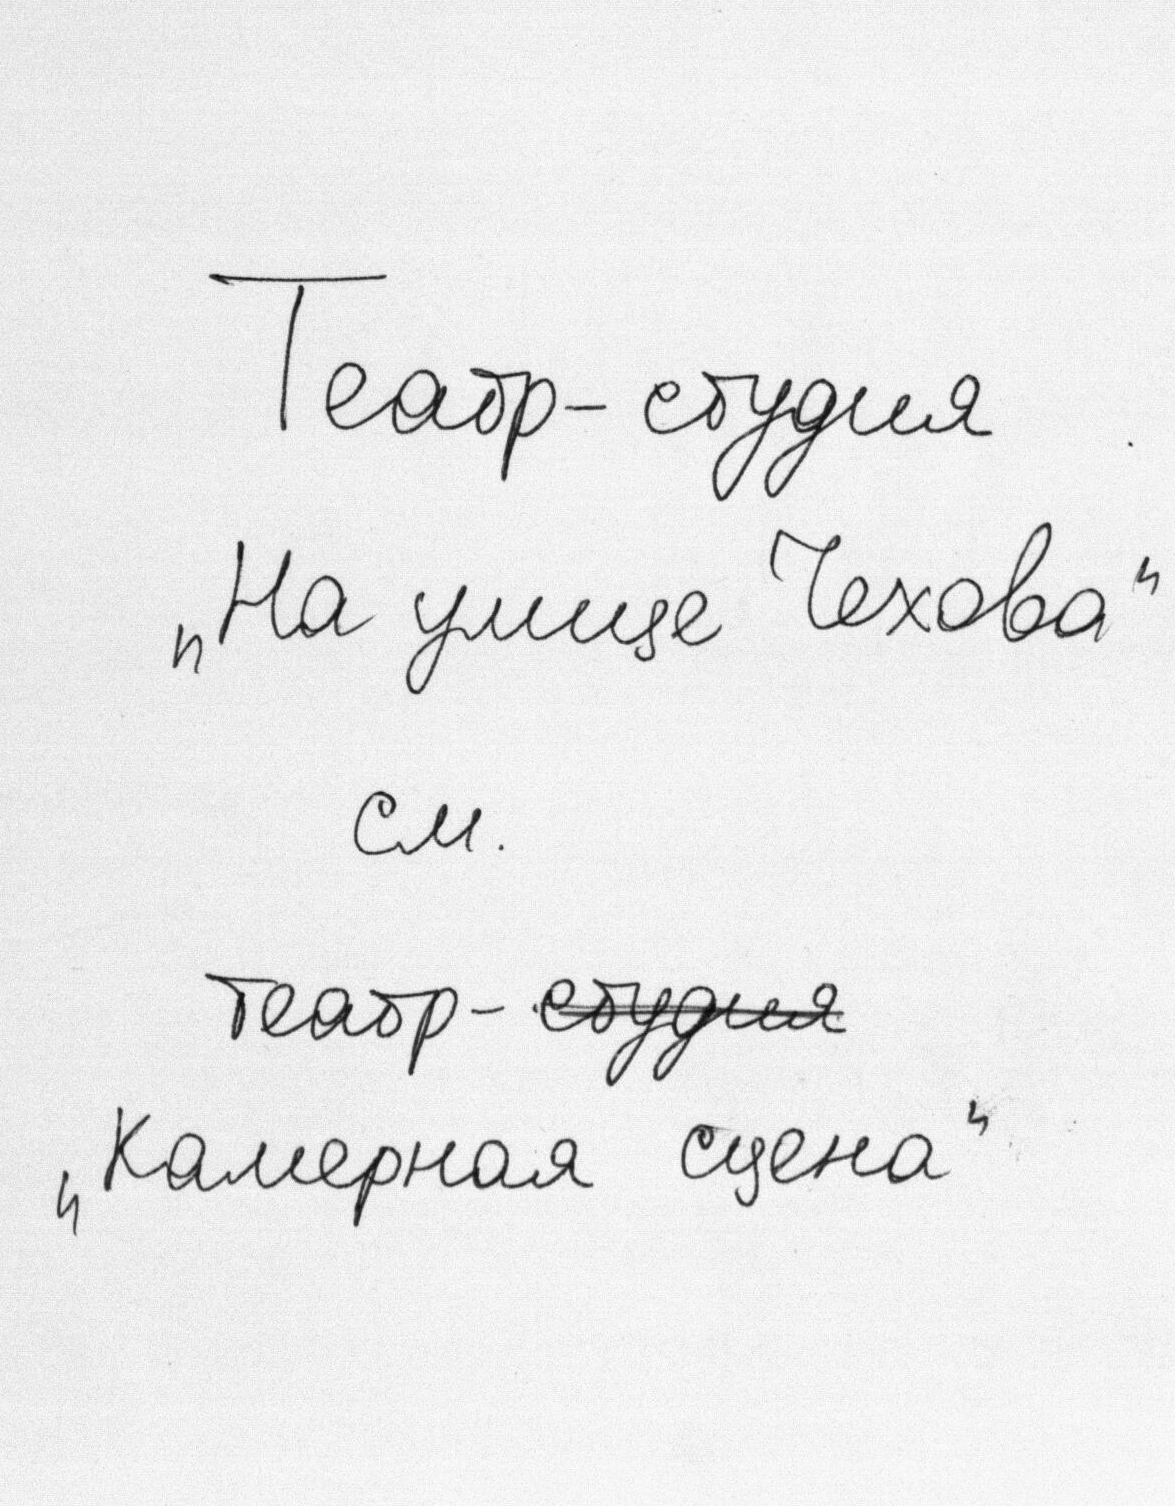 Театр-студия
„На улице Чехова“
см.
театр- студия
„Камерная сцена“